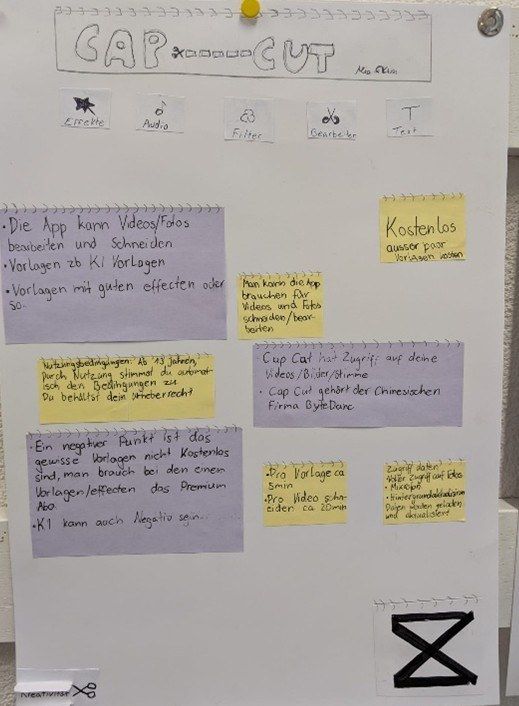 CAP CUT
Effekte
Audio
Filter
Bearbeiten
T
Text
• Die App kann Videos/Fotos
bearbeiten und Schneiden
• Vorlagen zb KI Vorlagen
• Vorlagen mit guten effecten oder
so.
Kostenlos
ausser paar
Vorlagen kosten
Man kann die App
brauchen für
Videos und Fotos
schneiden/bear-
beiten
Nutzungsbedingungen: Ab 13 Jahren,
Durch Nutzung stimmst du automat-
isch den Bedingungen zu
Du behältst dein Urheberrecht
• Cap Cut hat Zugriff auf deine
Videos/Bilder/Stimme
• Cap Cut gehört der Chinesischen
Firma ByteDanc
• Ein negativer Punkt ist das
gewisse Vorlagen nicht Kostenlos
sind, man brauch bei den einen
Vorlagen/effecten das Premium
Abo
• KI kann auch Negativ sein...
• Pro Vorlage ca
5min
• Pro Video sch-
eiden ca 20min
Zugriff daten:
Voller Zugriff auf Fotos
• Mikrofon
Daten werden geladen
und aktualisiert
Kreativität